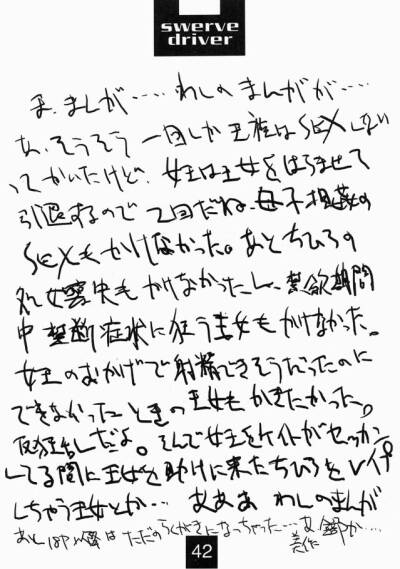 swerve
driver
ま、まんが……わしのまんがが……
あ、そうそう一回しか王族はSEXしない
ってかいたけど、女王は王女をはらませて
引退するので2回だね。母子相姦の
SEXもかけなかった。あとちひろの
処女喪失もかけなかったし、禁欲期間
中禁断症状に狂う王女もかけなかった。
女王のおかげで射精できそうだったのに
できなかったときの王女もかきたかった。
だよ。そんで女王とケイトがセックス
してる間に王女を助けに来たちひろをレイプ
しちゃう王女とか…ああぁわしのまんが
あと18P以降はただのらくがきになっちゃった…
42